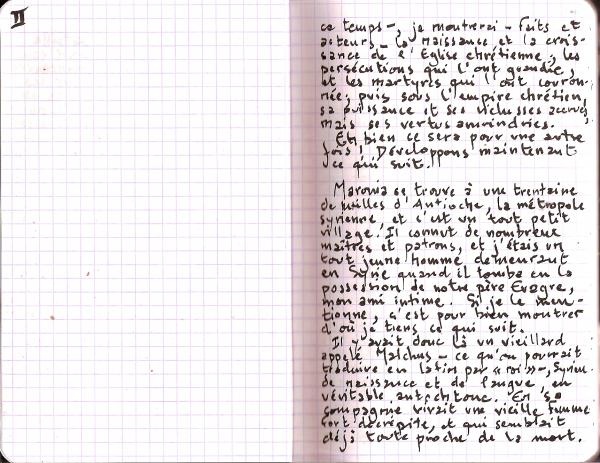 II
ce temps-, je montrerai - faits et
acteurs - la naissance et la crois-
sance de l'Eglise chrétienne, les
persécutions qui l'ont grandie,
et les martyres qui l'ont couron-
née; puis sous l'empire chrétien,
sa puissance et ses richesses accrues,
mais ses vertus amoindries.
Eh bien ce sera pour une autre
fois! Développons maintenant
ce qui suit.
Maronia se trouve à une trentaine
de milles d'Antioche, la métropole
syrienne, et c'est un tout petit
village. Il connut de nombreux
maîtres et patrons, et j'étais un
tout jeune homme demeurant
en Syrie quand il tomba en la
possession de notre père Evagre,
mon ami intime. Si je le men-
tionne, c'est pour bien montrer
d'où je tiens ce qui suit.
Il y avait donc là un vieillard
appelé Malchus - ce qu'on pourrait
traduire en latin par "roi" -, Syrien
de naissance et de langue, en
véritable autochtone. En sa
compagnie vivait une vieille femme
fort décrépite, et qui semblait
déjà toute proche de la mort.